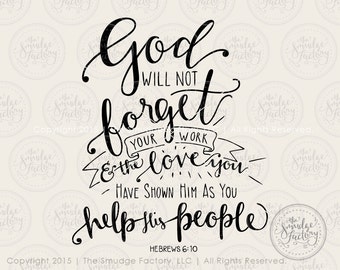 God
WILL NOT
forget
YOUR WORK
& the love you
HAVE SHOWN HIM AS YOU
help His people
HEBREWS 6:10
the Smudge Factory
Copyright 2015 | The Smudge Factory, LLC | All Rights Reserved